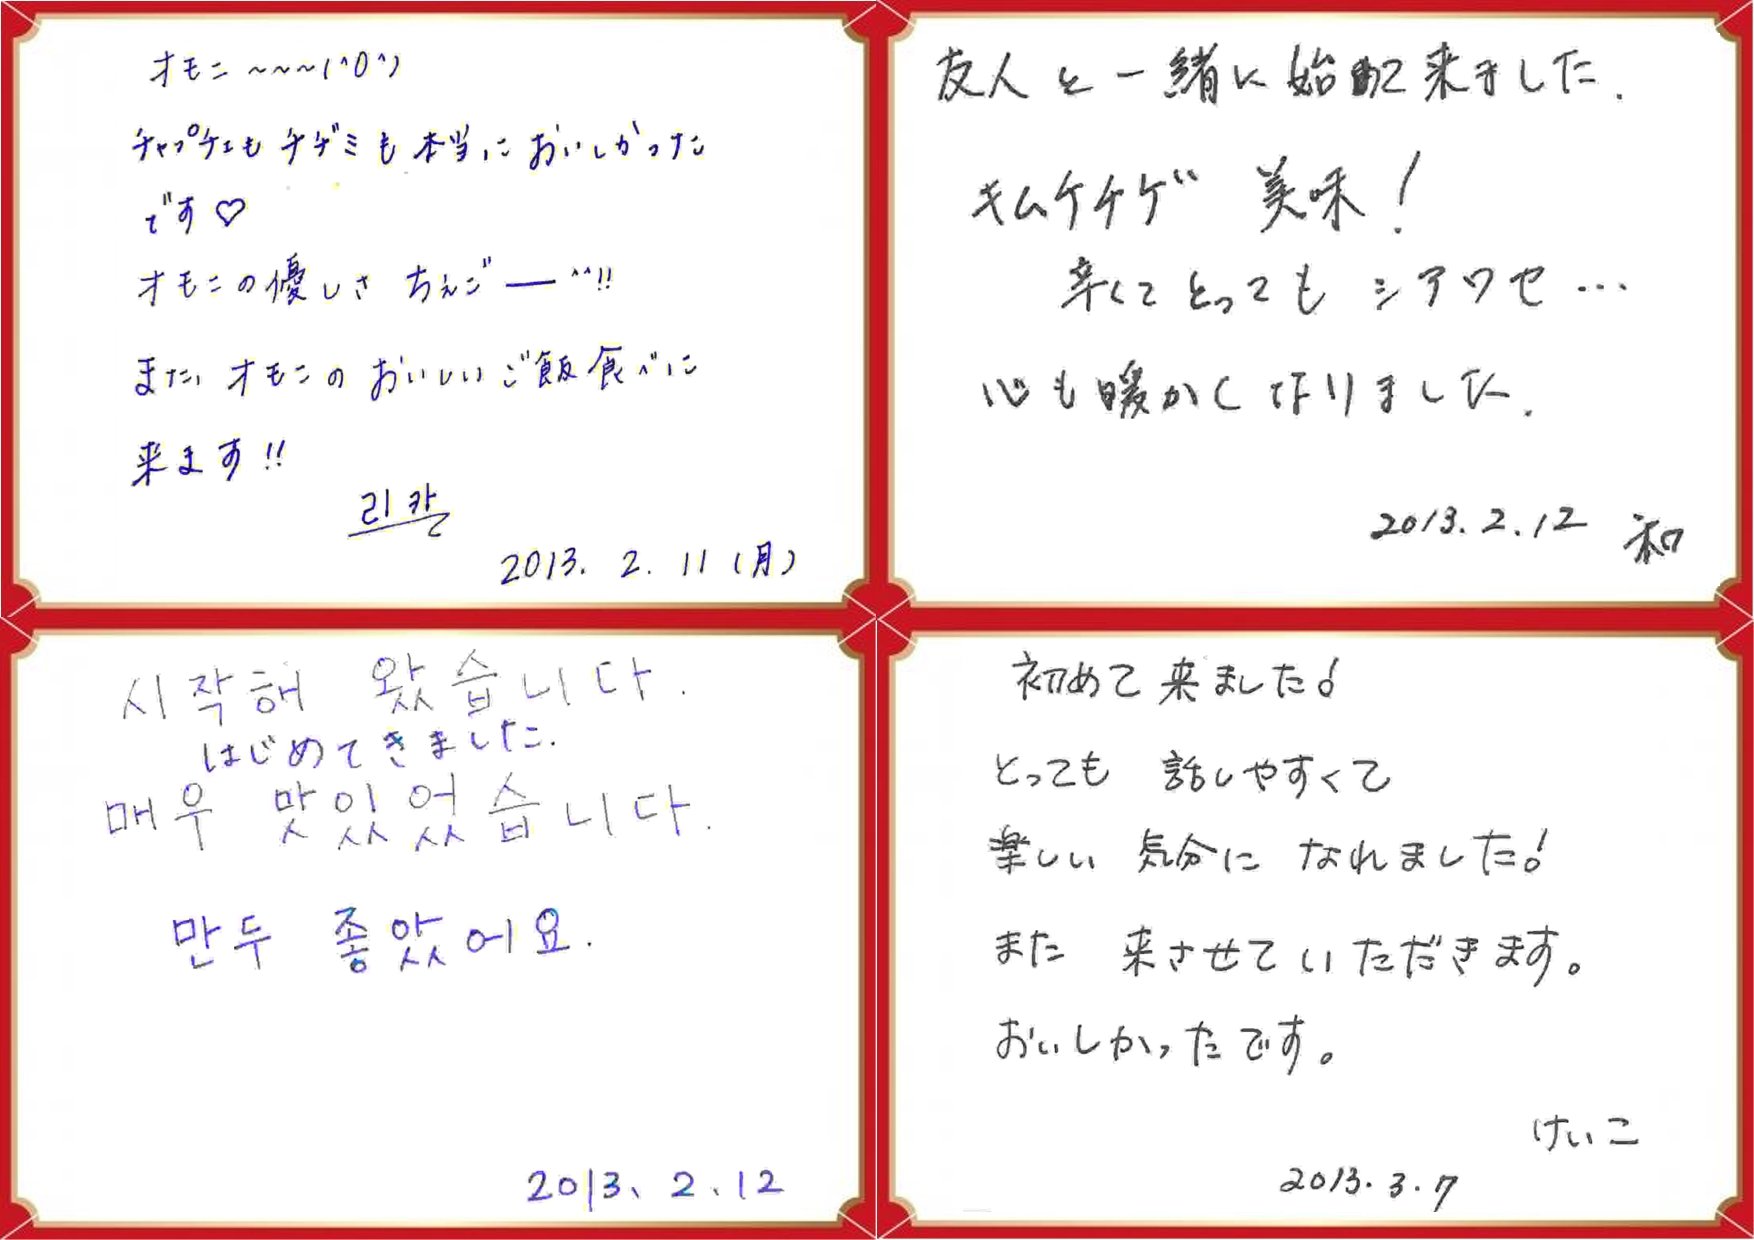 オモニ~~~(^O^)
チャプチェも チヂミも 本当に おいしかった
です♡
オモニの優しさ ちぇごー^^!!
また、オモニの おいしい ご飯 食べに
来ます!!
리카
2013. 2. 11 (月)
友人と一緒に始めて来ました.
キムケチゲ 美味!
辛くて とっても シアワセ…
心も暖かく 作りました.
2013. 2. 12 和
시작해 왔습니다.
はじめてきました.
매우 맛있었습니다.
만두 좋았어요.
2013、2.12
初めて来ました!
とっても 話しやすくて
楽しい 気分に なれました!
また 来させていただきます。
おいしかったです。
けいこ
2013. 3. 7